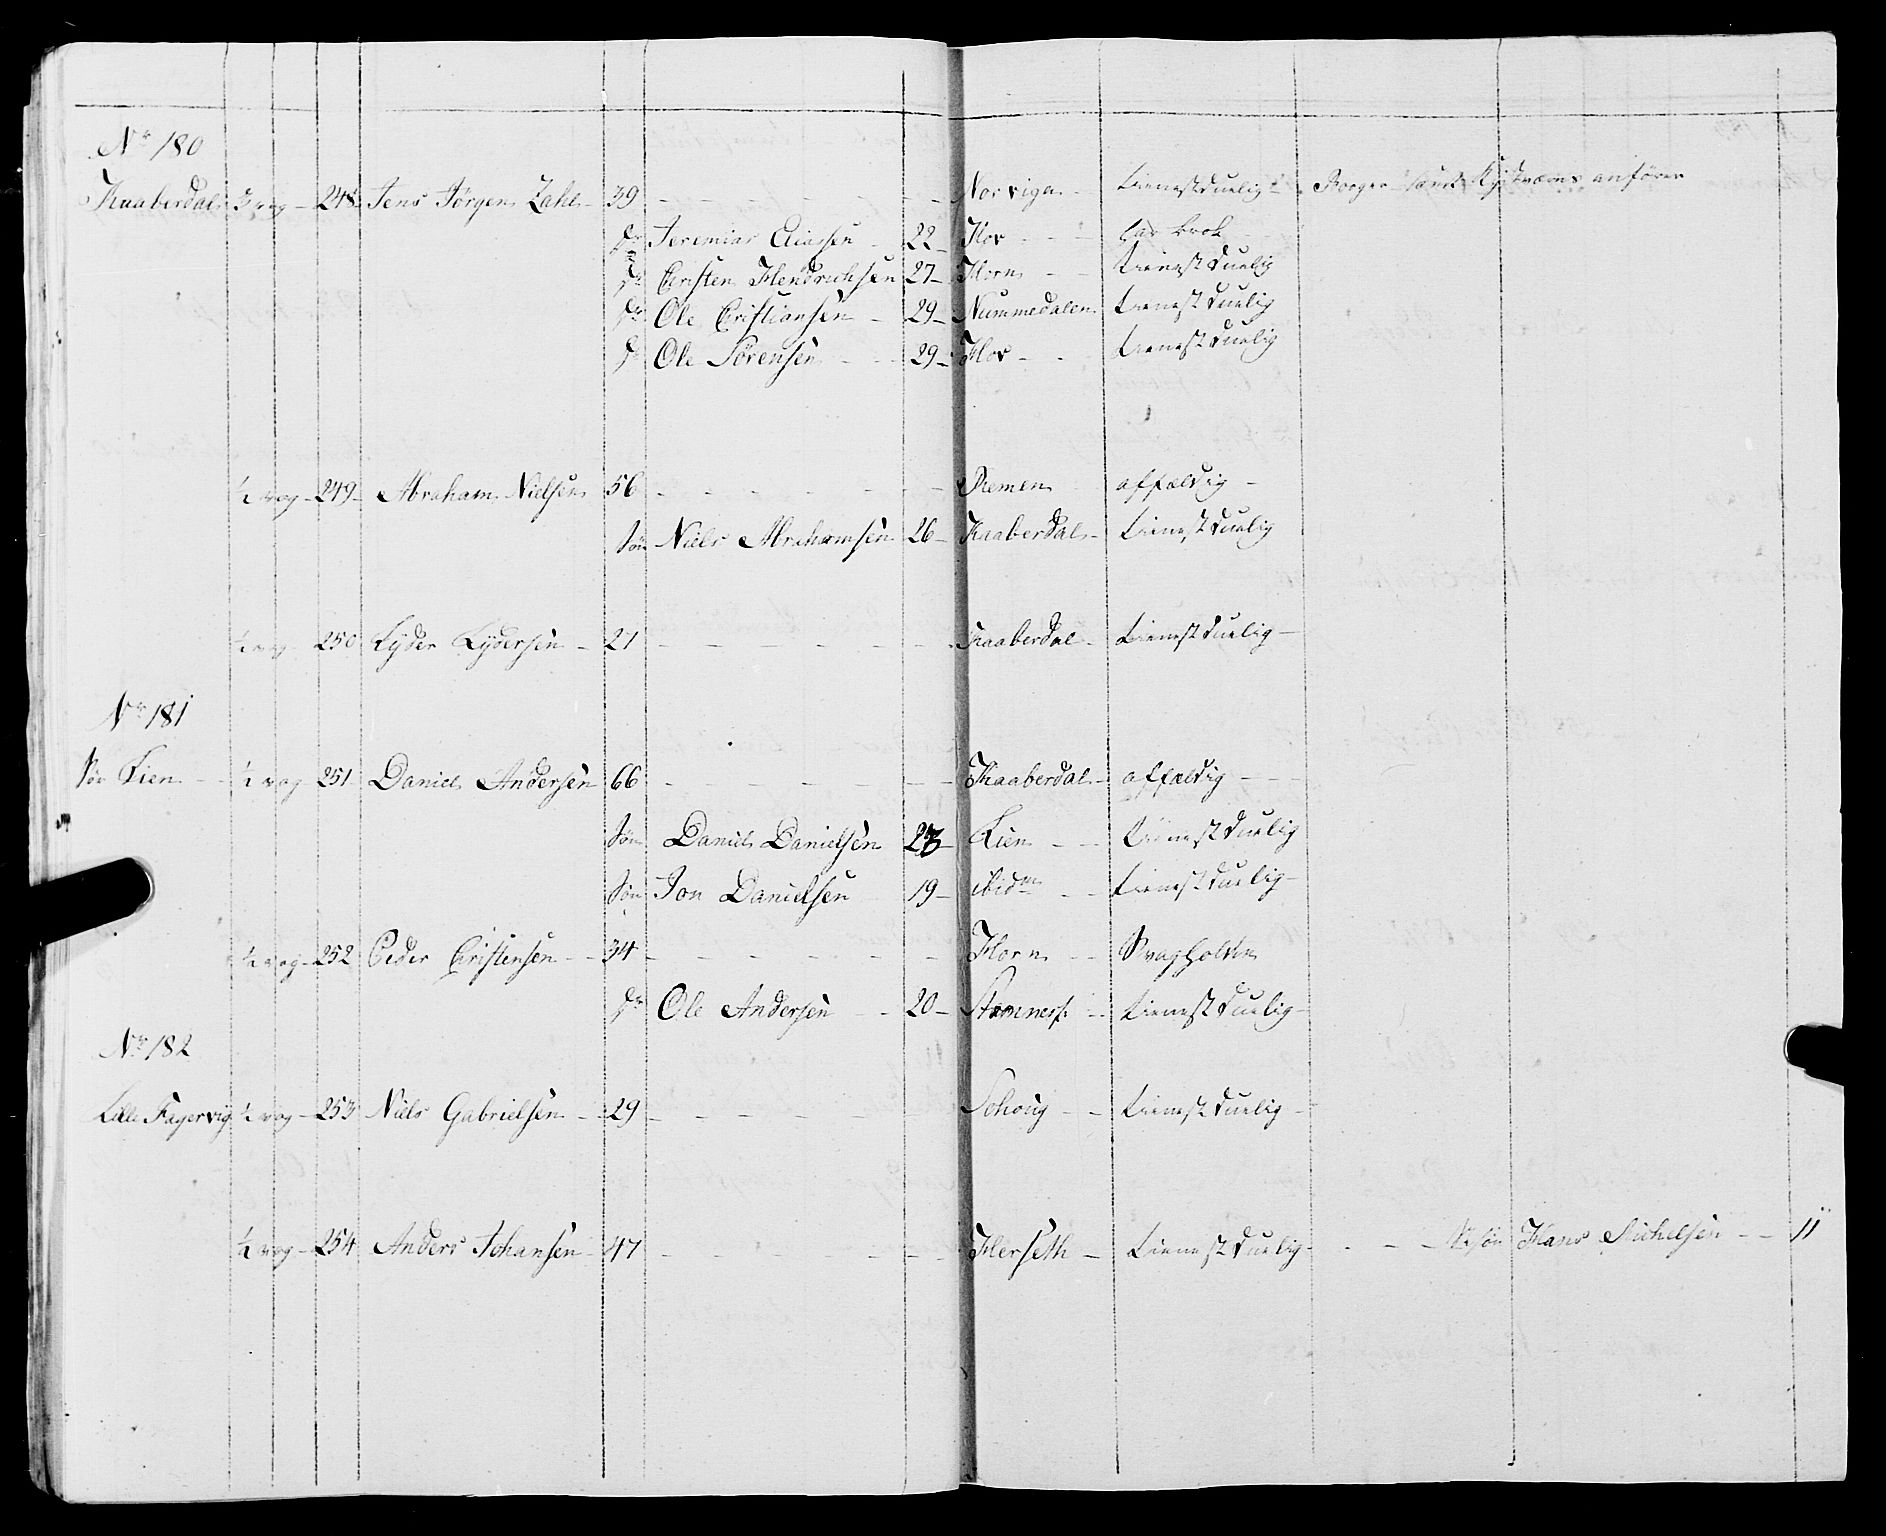 No 180
Kaaberdal 3 vog 248 Jens Jörgen Zahl 39 Norvigen tienestduelig Borger samt Kystværns anförer
Dr Jeremias 22 Hov har brok
Dr Christen Hendrichsen 27 Horn tienestduelig
Dr Ole Christiansen 29 Nummedalen tienestduelig
Dr Ole Sörensen 29 Hov tienestduelig
½ vog 249 Abraham Nielsen 56 Remen affældig
Sön Niels Abrahamsen 26 Kaaberdal tienestduelig
½ vog 250 Lyder Lydersen 21 Kaaberdal tienestduelig
No 181
Sör Lien ½ vog 251 Daniel Andersen 66 Kaaberdal affældig
Sön Daniel Danielsen Lien tienestduelig
Sön Jon Danielsen 19 ibidm tienestduelig
½ vog 252 Peder Christensen 34 Horn Svagholden
Dr Ole Andersen 20 tienestduelig
No 182
Lille Fagervig ½ vog 253 Niels Gabrielsen 29 tienestduelig
½ vog 254 Anders Johansen 47 Herseth tienestduelig Hans Michelsen 11